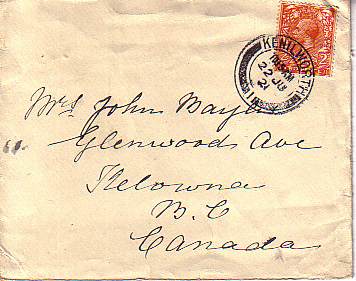 KENILWORTH
22 JU
21
Mrs John Mayer
Glenwoods Ave
Kelowna
B.C
Canada